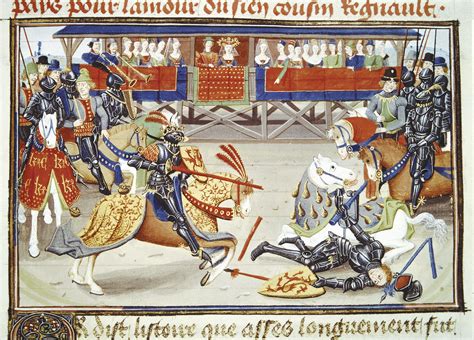 pays pour lamour du sien cousin Regnault.
Or dist listoire que asses longuement fut